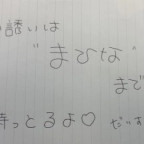 誘いは
"まひな"
まで
待っとるよ♡